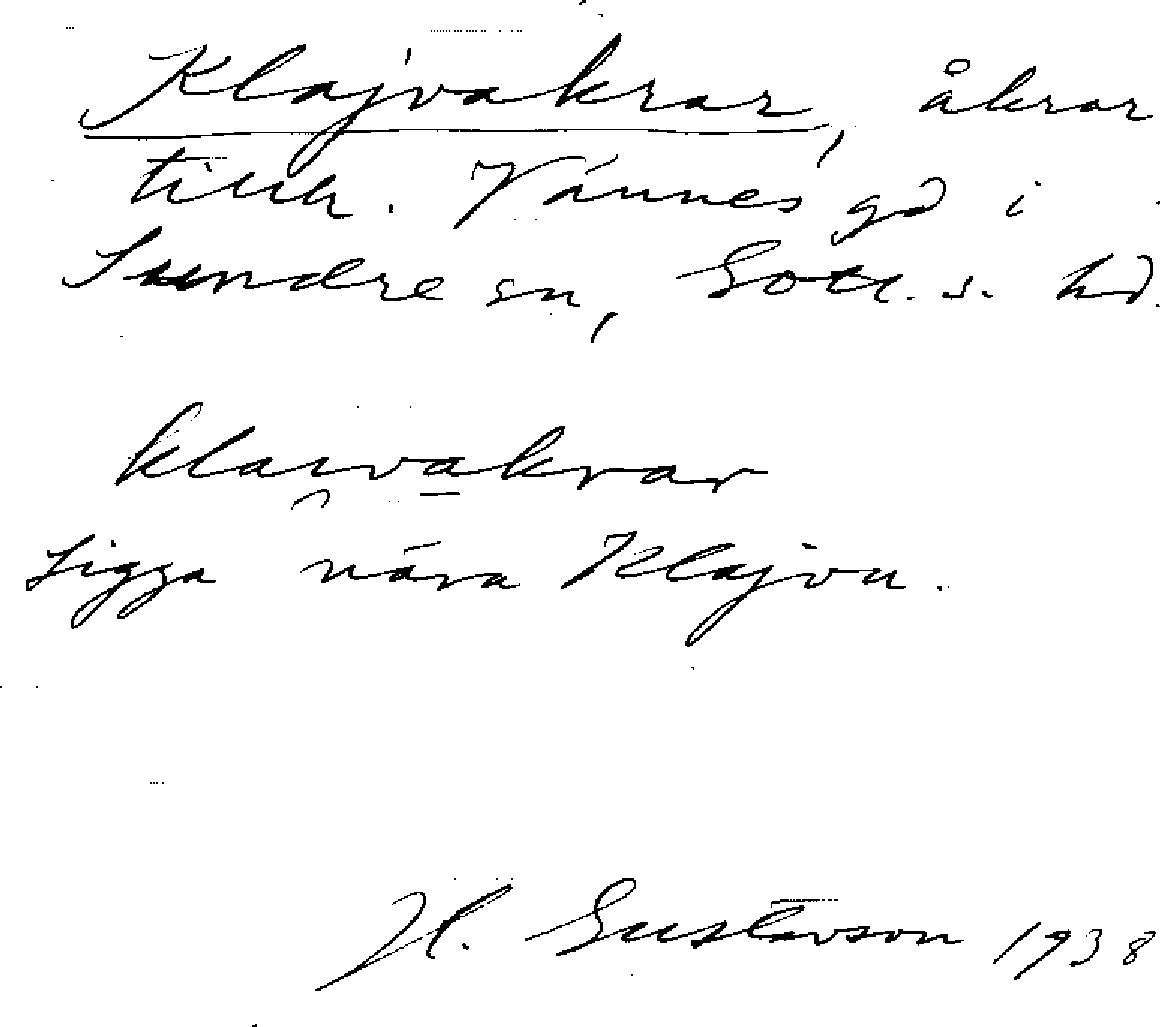 Klajvakrar, åkrar
tillh. Vännes gd i
Sundre sn, Gotl. s. hd.
klaivakrar
Ligga nära Klajvu.
H. Gustavson 1938